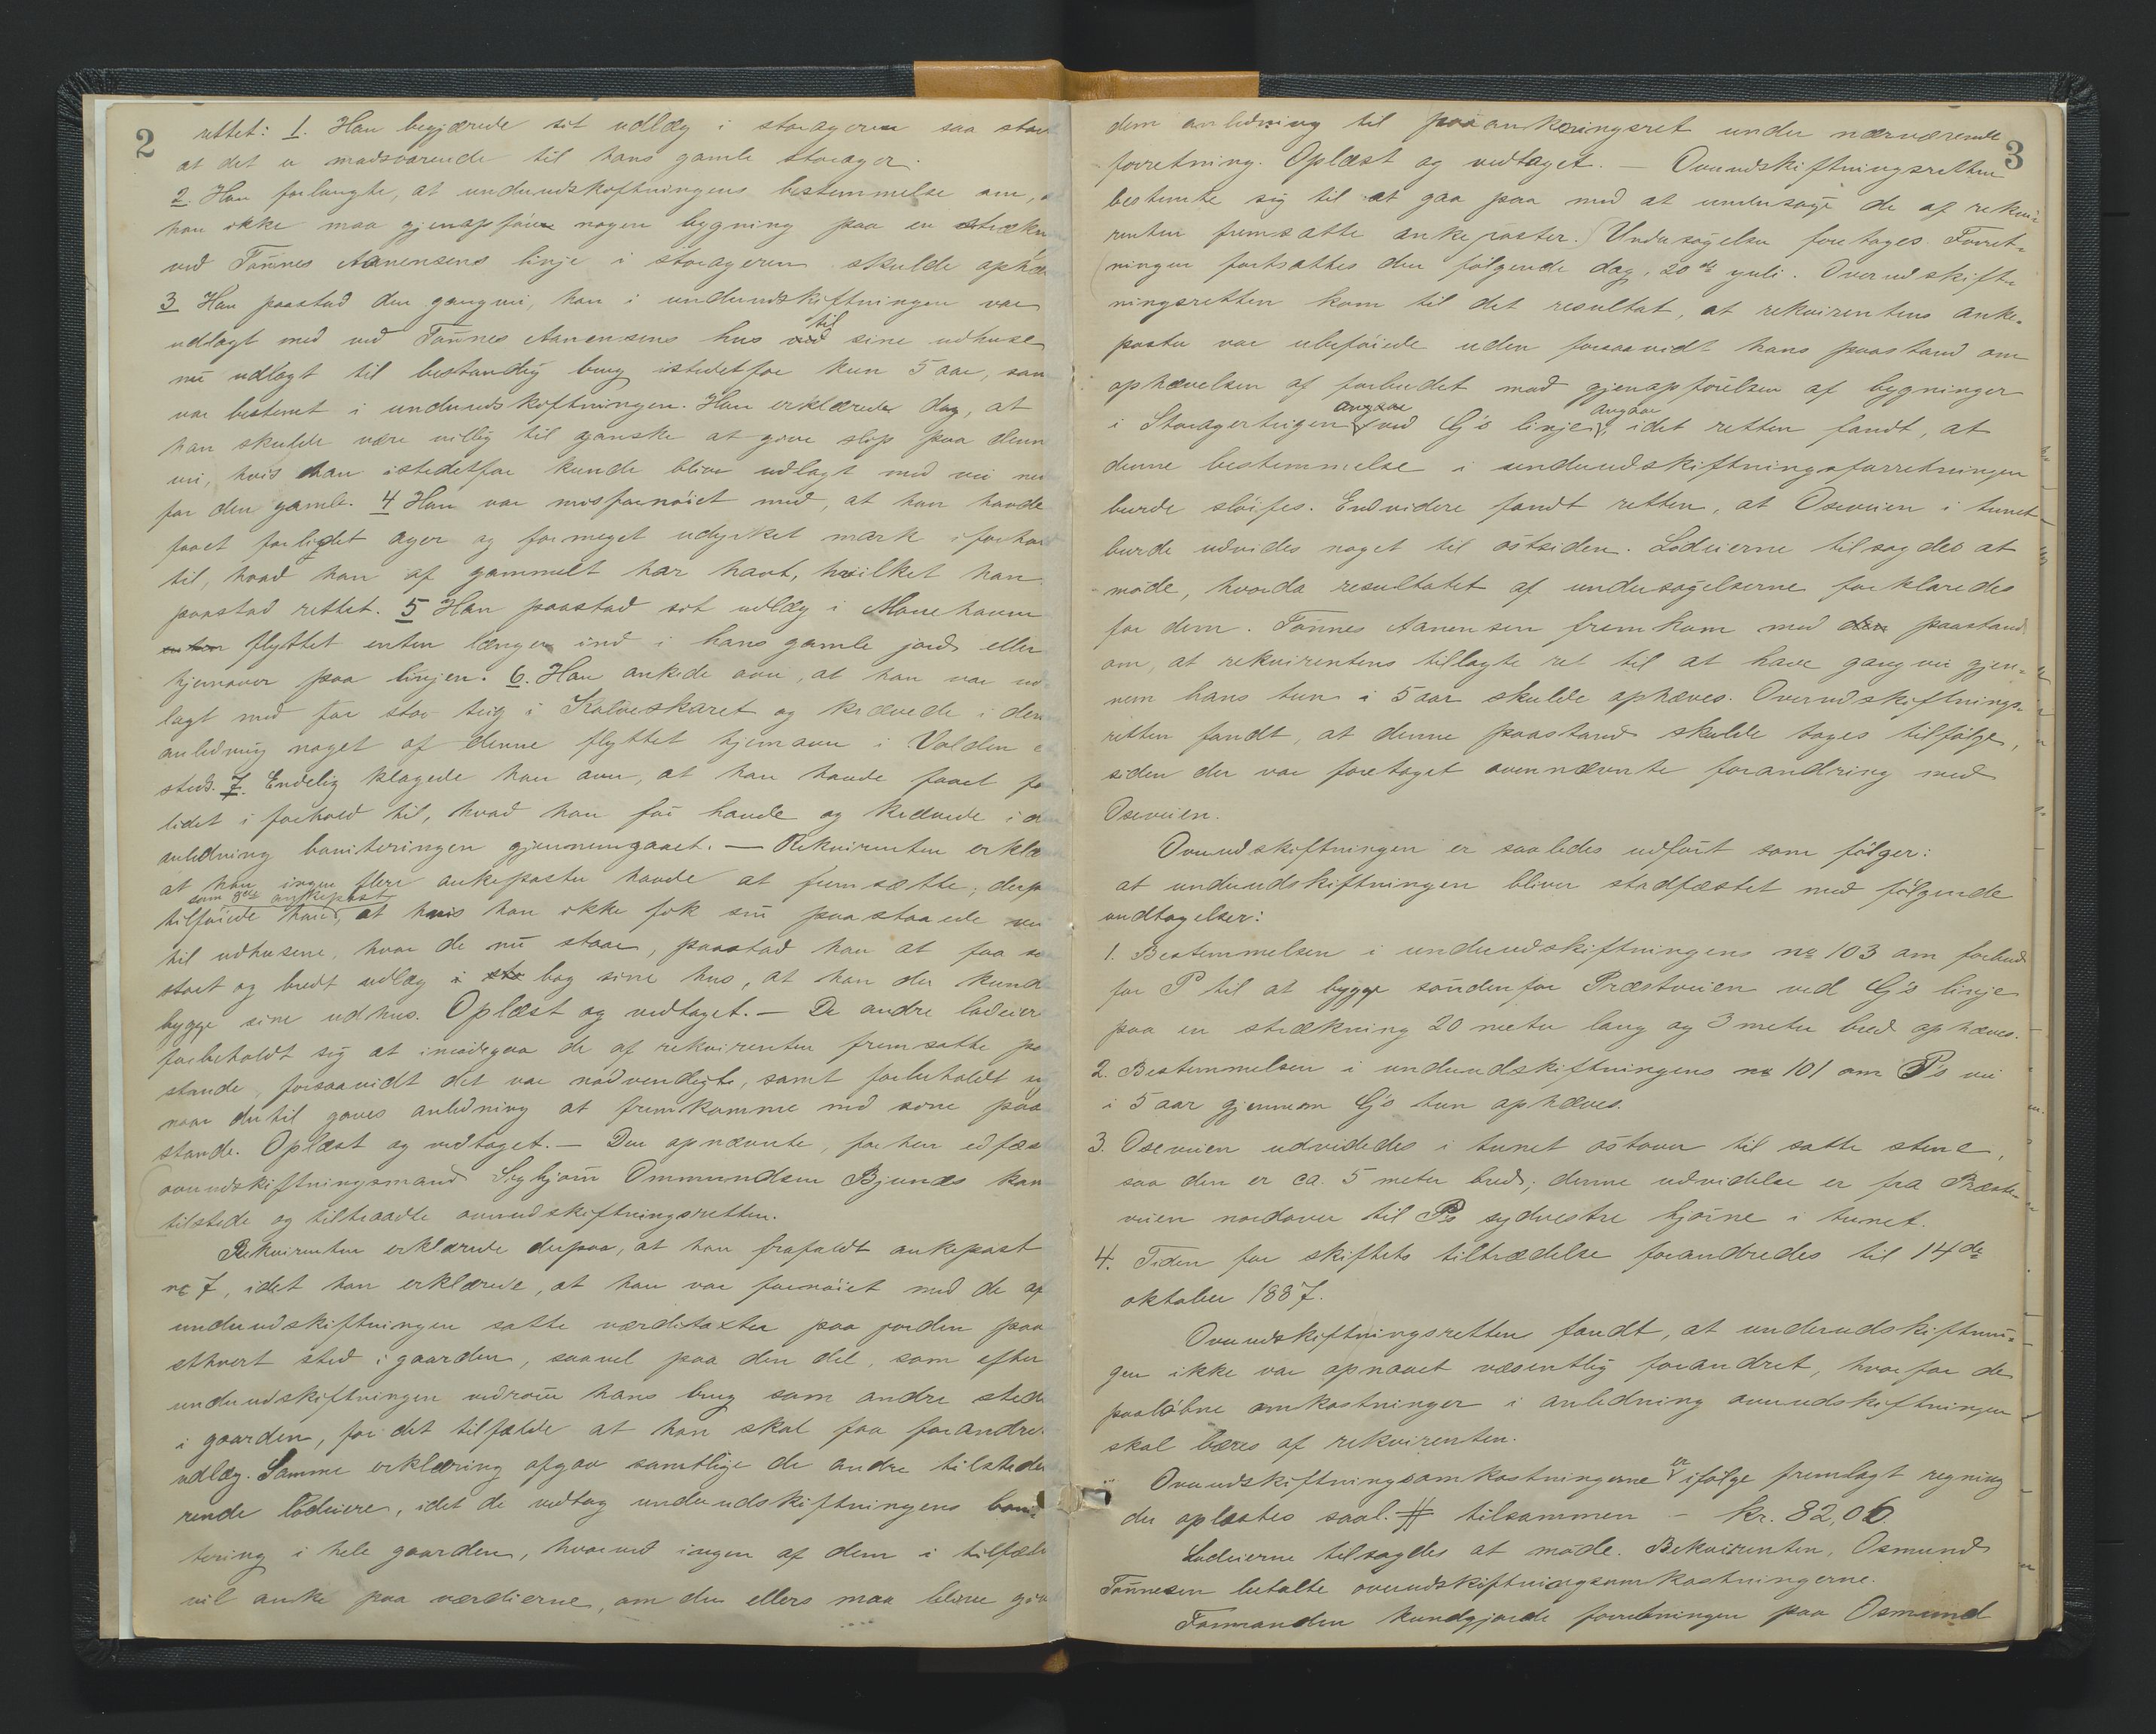 2
rettet: 1. Han begjærede sit udlæg i storageren saa stort
at det er modsvarende til hans gamle storager.
2. Han forlangte, at underudskiftningens bestemmelse om, a
han ikke maa gjenopføre nogen bygning paa en strækn
ved Tønnes Aanensens linje i storageren skulde ophæ
3 Han paastod den gangvei, han i underudskiftningen var
udlagt med ved Tønnes Aanensens hus ved til sine udhuse
nu udlagt til bestandig brug istedetfor kun 5 aar, som
var bestemt i underudskiftningen. Han erklærede dog, at
han skulde være villig til ganske at give slip paa denn
vei, hvis han istedetfor kunde blive udlagt med vei ne
for den gamle. 4 Han var misfornøiet med, at han havde
faaet forlidet ager og formeget udyrket mark i forhold
til, hvad han af gammelt har havt, hvilket han
paastod rettet. 5 Han paastod sit udlæg i Monehaven
enten flyttet enten længer ind i hans gamle jord eller
hjemover paa linjen. 6. Han ankede over, at han var ud
lagt med for stor teig i Kalveskaret og krævede i den
anledning noget af denne flyttet hjemover i Valden e
sted. 7. Endelig klagede han over, at han havde faaet fo
lidet i forhold til, hvad han før havde og krævede i d
anledning boniteringen gjennemgaaet. — Rekvirenten erklæ
at han ingen flere ankeposter havde at fremsætte; derp
tilføiede han som 8de ankepost, at hvis han ikke fik sin paastaaede vei
til udhusene, hvor de nu staar, paastod han at faa sa
stort og bredt udlæg i sto bag sine hus, at han der kund
bygge sine udhus. Oplæst og vedtaget. — De andre lodeier
forbeholdt sig at imødegaa de af rekvirenten fremsatte pa
stande, forsaavidt det var nødvendigt, samt forbeholdt sig
naar dertil gaves anledning at fremkomme med sine paa
stande. Oplæst og vedtaget. — Den opnævnte, forhen edfæs
overudskiftningsmand Sigbjørn Ommundsen Bjunes kom
tilstede og tiltraadte overudskiftningsretten.
Rekvirenten erklærede derpaa, at han frafaldt ankepost
no 7, idet han erklærede, at han var fornøiet med de af
underudskiftningen satte værditaxter paa jorden paa
ethvert sted i gaarden, saavel paa den del, som efter
underudskiftningen vedrører hans brug som andre sted
i gaarden, for det tilfælde at han skal faa forandre
udlæg. Samme erklæring afgav samtlige de andre tilstede
rende lodeiere, idet de vedtog underudskiftningens boni-
tering i hele gaarden, hvorved ingen af dem i tilfæld
vil anke paa værdierne, om der ellers maa blive giv
3
dem anledning til paaankningsret under nærværende
forretning. Oplæst og vedtaget. — Overudskiftningsretten
bestemte sig til at gaa paa med at undersøge de af rekvi-
renten fremsatte ankeposter. Undersøgelsen foretages. Forret-
ningen fortsattes den følgende dag, 20de juli. Overudskift-
ningsretten kom til det resultat, at rekvirentens anke-
poster var ubeføiede uden forsaavidt hans paastand om
ophævelsen af forbudet mod gjenopførelsen af bygninger
i Storagerteigen angaar ved G's linje angaar, idet retten fandt, at
denne bestemmelse i underudskiftningsforretningen
burde sløifes. Endvidere fandt retten, at Oseveien i tunet
burde udvides noget til østsiden. Lodeierne tilsagdes at
møde, hvorda resultatet af undersøgelserne forklaredes
for dem. Tønnes Aanensen fremkom med den paastand
om, at rekvirentens tillagte ret til at have gangvei gjen-
nem hans tun i 5 aar skulde ophæves. Overudskiftnings-
retten fandt, at denne paastand skulde tages tilfølge,
siden der var foretaget ovennævnte forandring med
Oseveien.
Overudskiftningen er saaledes udført som følger:
at underudskiftningen bliver stadfæstet med følgende
undtagelser:
1. Bestemmelsen i underudskiftningens no 103 om forbud
for P til at bygge søndenfor Præstveien ved G's linje
paa en strækning 20 meter lang og 3 meter bred ophæves.
2. Bestemmelsen i underudskiftningens no 101 om P's vei
i 5 aar gjennem G's tun ophæves.
3. Oseveien udvidedes i tunet østover til satte stene,
saa den er ca. 5 meter bred; denne udvidelse er fra Præste-
veien nordover til P's sydvestre hjørne i tunet.
4. Tiden for skiftets tiltrædelse forandredes til 14de
oktober 1887.
Overudskiftningsretten fandt, at underudskiftnin-
gen ikke var opnaaet væsentlig forandret, hvorfor de
paaløbne omkostninger i anledning overudskiftningen
skal bæres af rekvirenten.
Overudskiftningsomkostningerne er ifølge fremlagt regning
der oplæstes saal. # tilsammen — kr. 82,06.
Lodeierne tilsagdes at møde. Rekvirenten, Osmund
Tønnesen betalte overudskiftningsomkostningerne.
Formanden kundgjorde forretningen paa Osmund